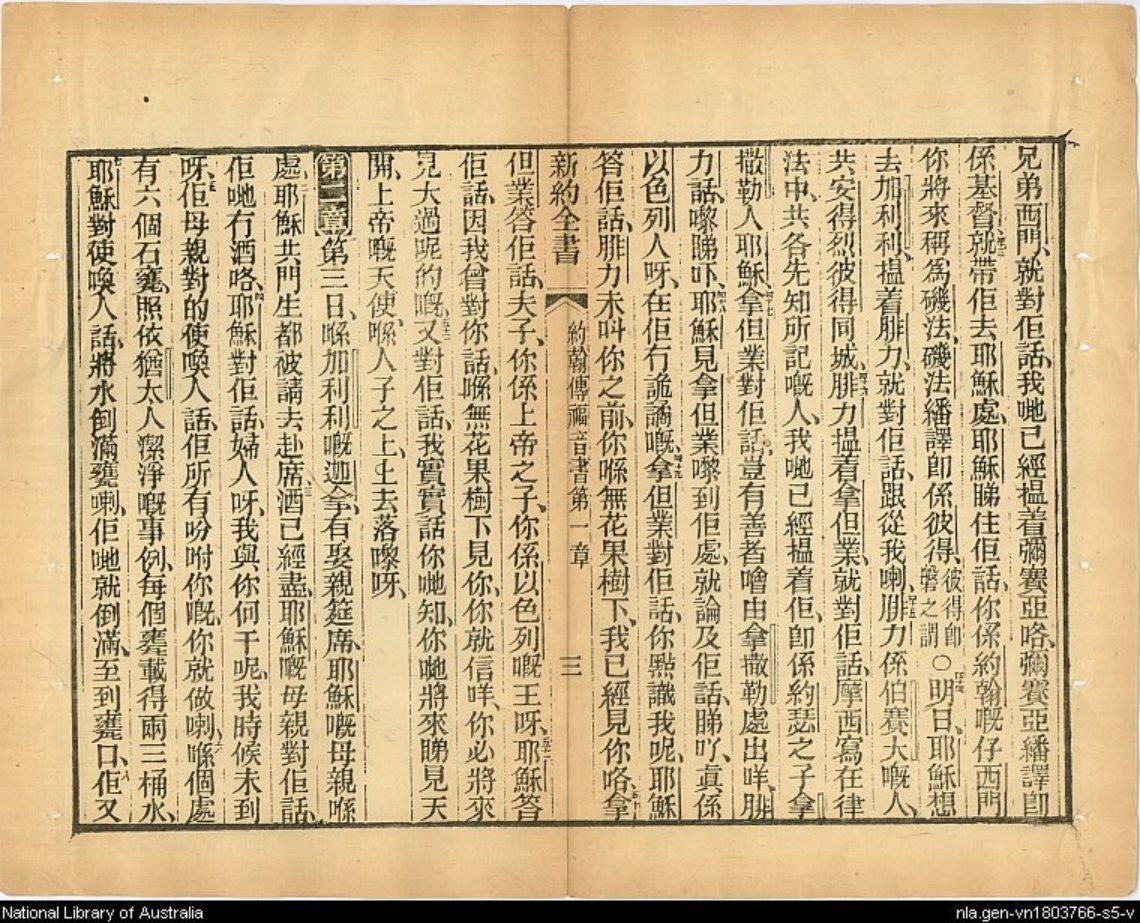 兄弟西門、就對佢話、我哋已經揾着彌賽亞咯、彌賽亞繙譯卽
係基督、就帶佢去耶穌處、耶穌睇住佢話、你係約翰嘅仔西門
你將來稱爲磯法、磯法繙譯卽係彼得、彼得卽磐之謂○明日、耶穌想
去加利利、揾着腓力、就對佢話、跟從我喇、腓力係伯賽大嘅人、
共安得烈彼得同城、腓力揾着拿但業、就對佢話、摩西寫在律
法中、共各先知所記嘅人、我哋已經揾着佢、卽係約瑟之子拿
撒勒人耶穌、拿但業對佢話、豈有善者噲由拿撒勒處出咩、腓
力話、嚟睇吓、耶穌見拿但業嚟到佢處、就論及佢話、睇吖、眞係
以色列人呀、在佢冇詭譎嘅、拿但業對佢話、你點識我呢、耶穌
答佢話、腓力未叫你之前、你喺無花果樹下、我已經見你咯、拿
新約全書 約翰傳福音書第一章 三
但業答佢話、夫子、你係上帝之子、你係以色列嘅王呀、耶穌答
佢話、因我曾對你話、喺無花果樹下見你、你就信咩、你必將來
見大過呢的嘅、又對佢話、我實實話你哋知、你哋將來睇見天
開、上帝嘅天使、喺人子之上、上去落嚟呀、
第二章 第三日、喺加利利嘅迦拿、有娶親筵席、耶穌嘅母親喺
處、耶穌共門生都被請去赴席、酒已經盡、耶穌嘅母親對佢話、
佢哋冇酒咯、耶穌對佢話、婦人呀、我與你何干呢、我時候未到
呀、佢母親對的使喚人話、佢所有吩咐你嘅、你就做喇、喺個處
有六個石甕、照依猶太人潔淨嘅事例、每個甕載得兩三桶水、
耶穌對使喚人話、將水倒滿甕喇、佢哋就倒滿、至到甕口、佢又
National Library of Australia
nla.gen-vn1803766-s5-v